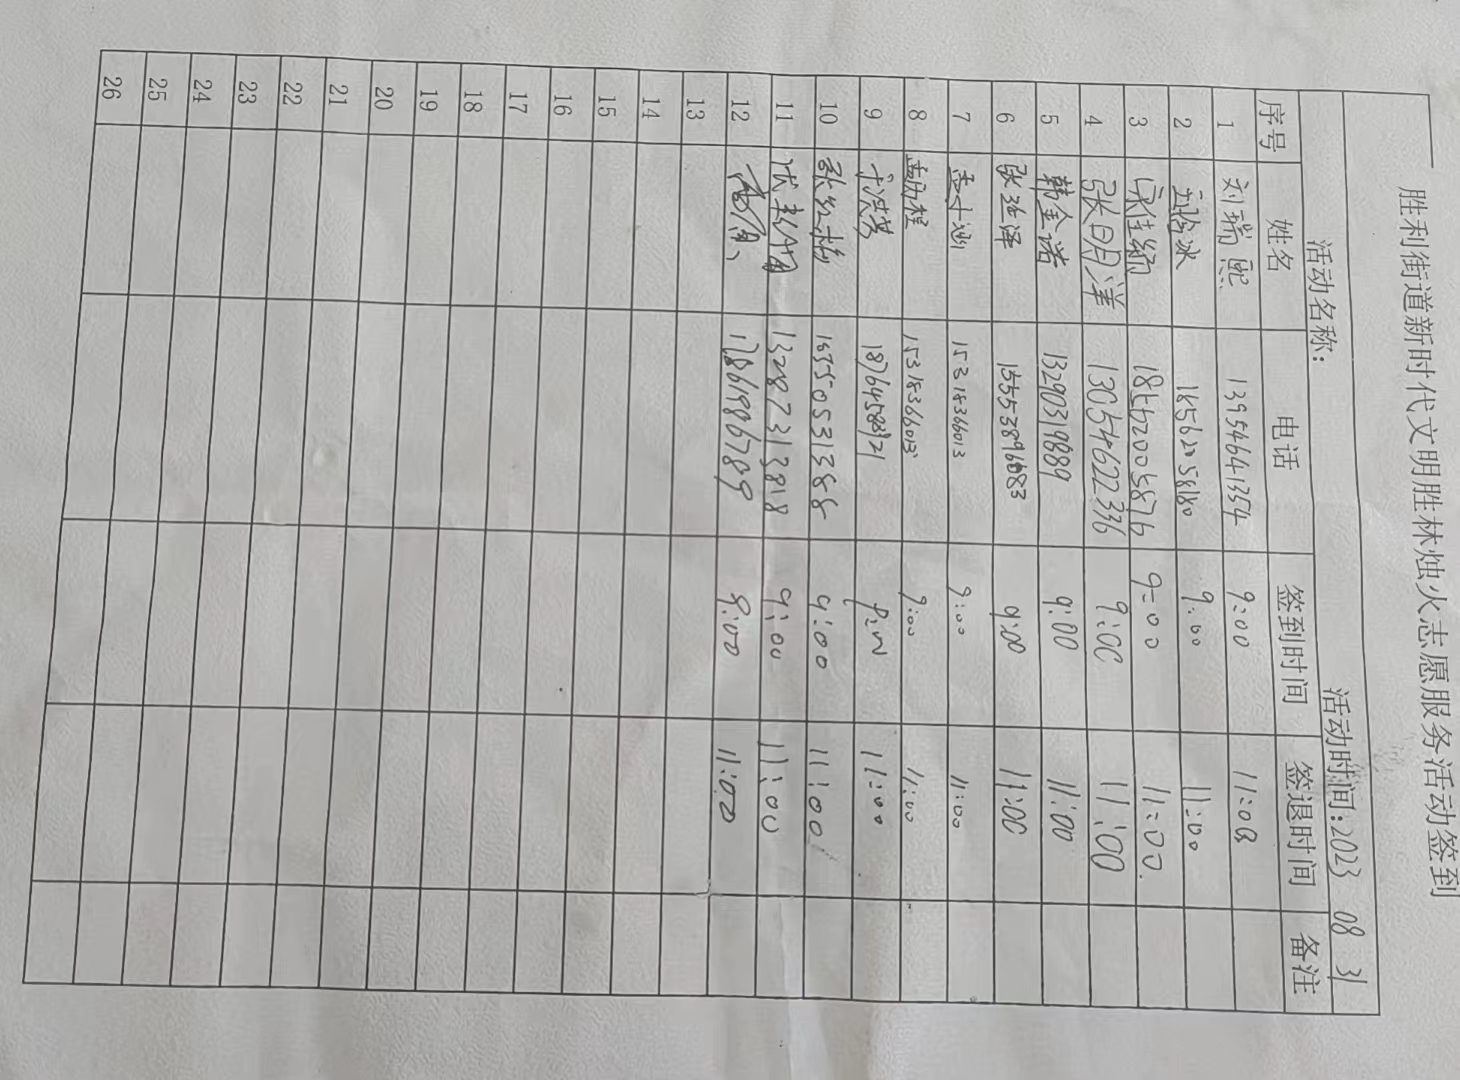 胜利街道新时代文明胜林烛火志愿服务活动签到
活动时间:2023 08 31
活动名称:
序号 姓名 电话 签到时间 签退时间 备注
1 刘瑞熙 13954641354 9:00 11:00
2 18562058180 9:00 11:00
3 18562005876 9:00 11:00
4 张明洋 13054622336 9:00 11:00
5 韩金诺 13290319889 9:00 11:00
6 15553896683 9:00 11:00
7 15318366013 9:00 11:00
8 15318366013 9:00 11:00
9 18764583921 11:00
10 9:00 11:00
11 13287313818 9:00 11:00
12 17861986789 9:00 11:00
13
14
15
16
17
18
19
20
21
22
23
24
25
26